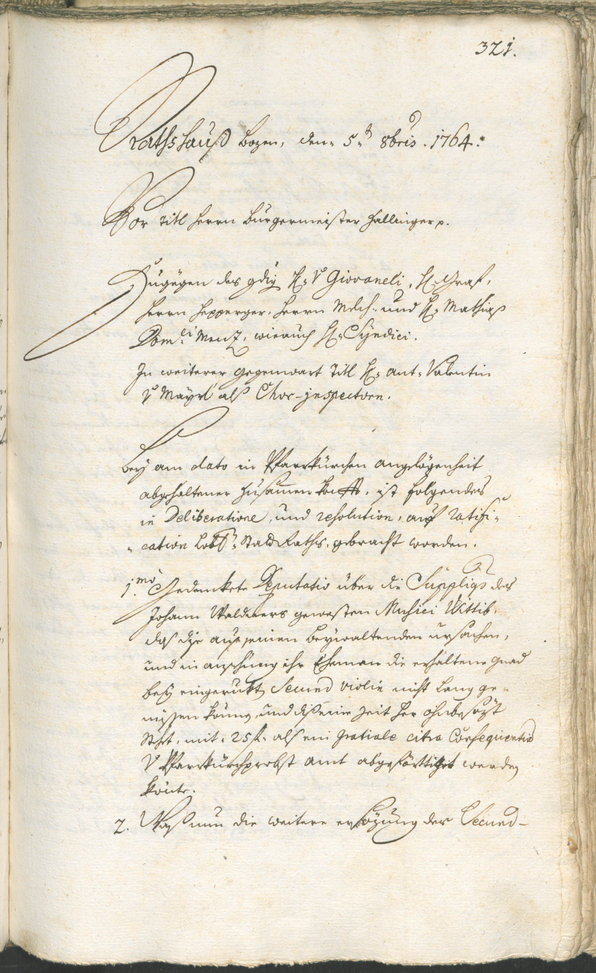 321.
Rathshauß Bozen, den 5.t 8bris. 1764.
Vor Titl Herrn Burgermeister Hallinger p.
Zugegen des gdig H: v Giovaneli, H: Graf,
Herrn Hepperger, Herrn Melch: und H: Mathias
Dom:ci Menz, wie auch H: Syndici.
In weiterer gegenwart Titl H: Ant: Valentin
v Mayrl als Chor-inspectorn.
Bey am dato in Pfarrkürchen angelögenheit
abgehaltener Zusamenkonfft, ist folgendes
in Deliberatione, und resolution, auf ratifi-
cation Lobl: Stadt Raths, gebracht worden.
1.mo Gedenckete Deputatio über die Supplique des
Johann Waldners gewesten Musici Wittib,
das die aus seinen beywaltenden ursachen,
und in ansehung ihr Eheman die erhaltene gnad
bey eingeruckt Secund violin nicht lang ge-
niessen könen, und dise eine Zeit her ohnbesözt
steht, mit 25 f. als ein gratiale citra Consequentiã
v Pfarrkürchprobst amt abgeförttiget werden
könte.
2. Was nun die weitere ersözung der Secund-